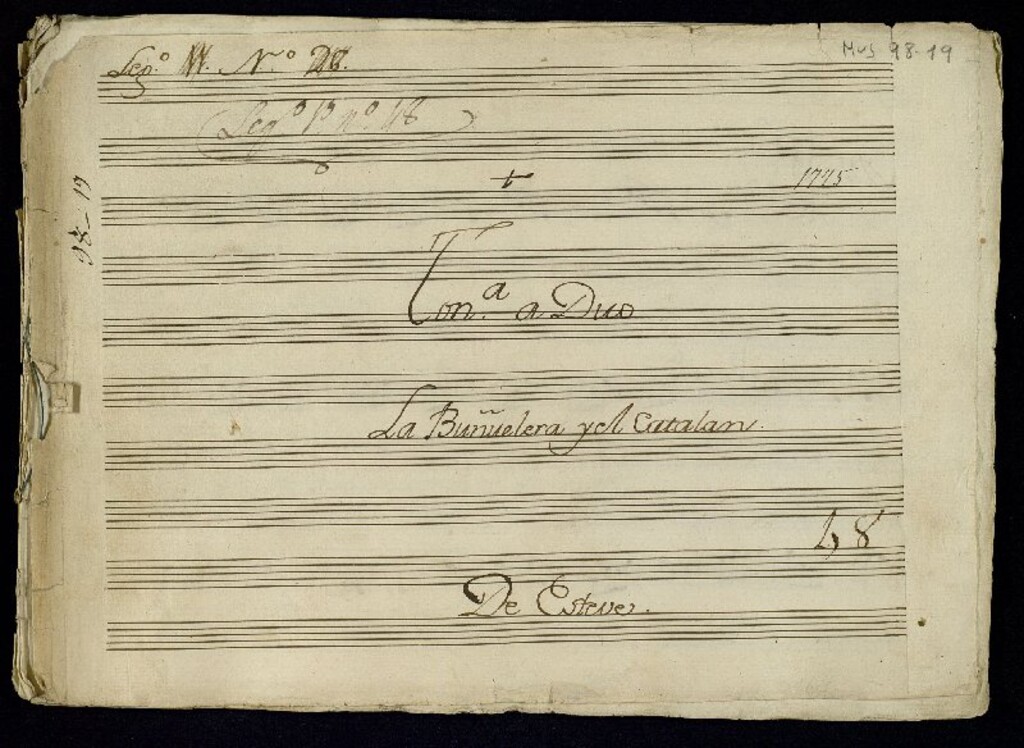 Leg.º N.º 18.
Mus 98-19
Leg.º 1º nº 18
+
1775
98-19
Ton.ª a Duo
La Buñuelera y el Catalan.
L, 8
De Esteve.